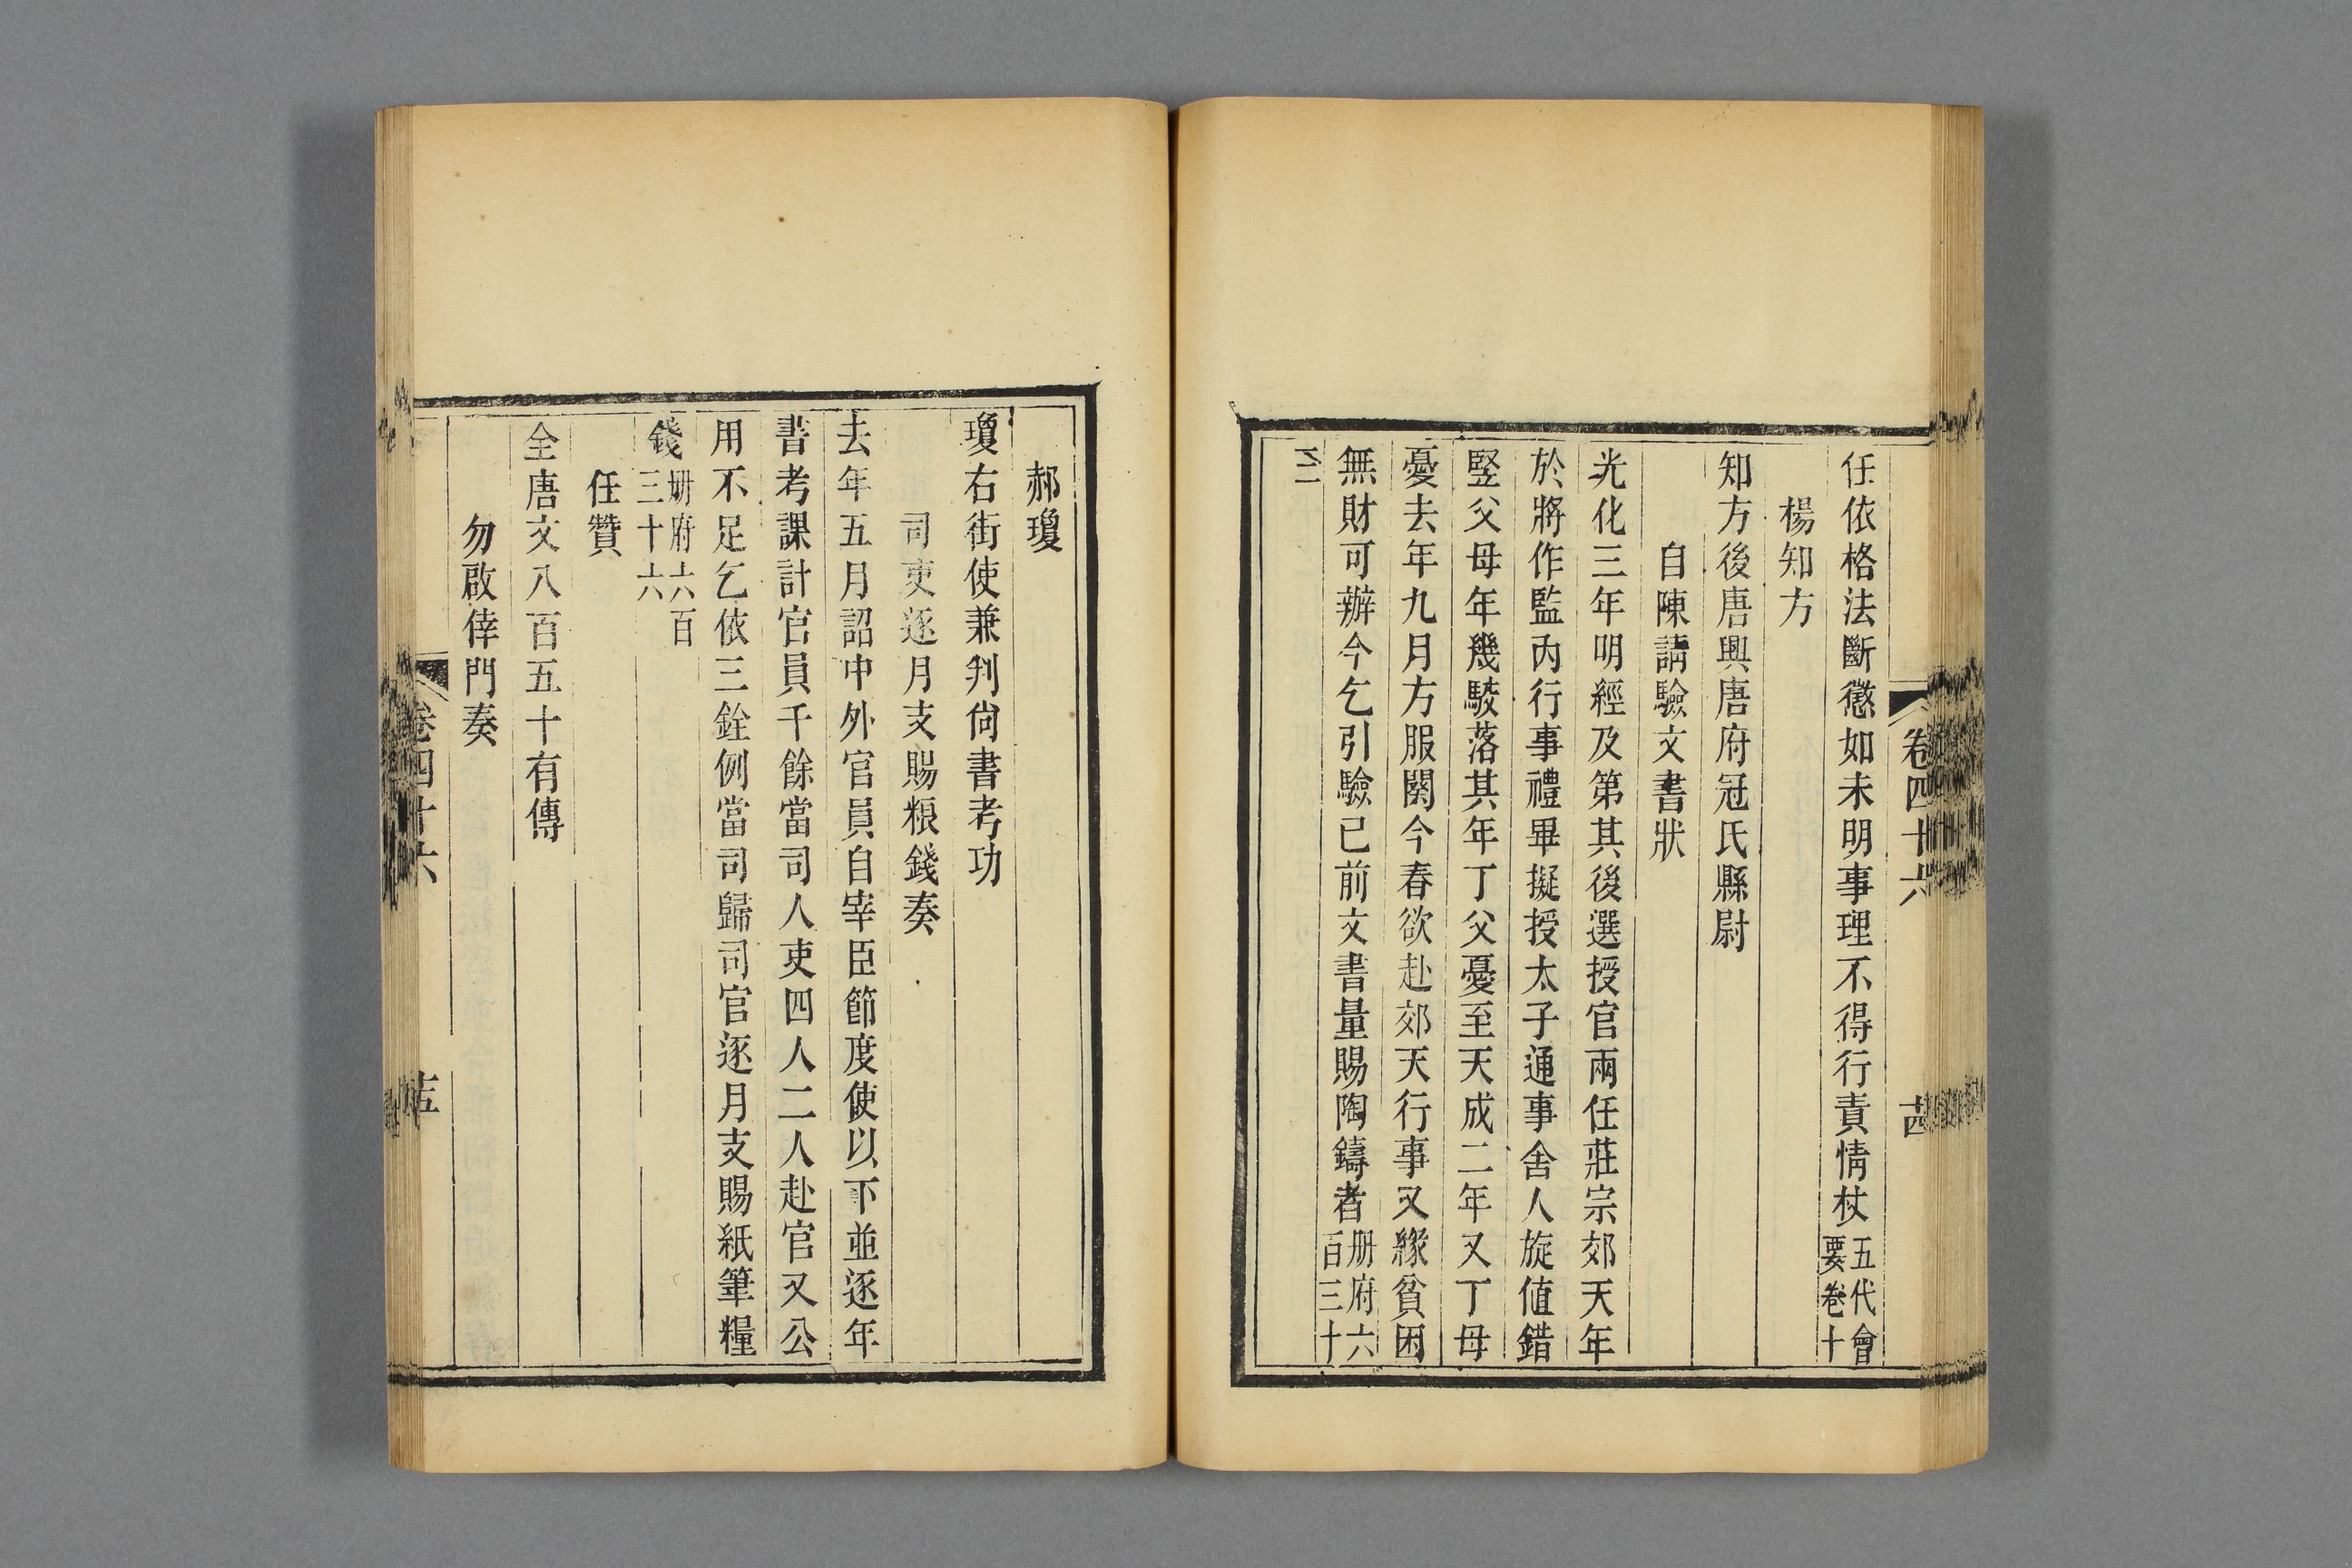 卷四十六 十四
任依格法斷懲如未明事理不得行責情杖五代會要卷十
楊知方
知方後唐興唐府冠氏縣尉
自陳請驗文書狀
光化三年明經及第其後選授官兩任莊宗郊天年
於將作監內行事禮畢擬授太子通事舍人旋值錯
竪父母年幾駮落其年丁父憂至天成二年又丁母
憂去年九月方服闋今春欲赴郊天行事又緣貧困
無財可辦今乞引驗已前文書量賜陶鑄者册府六百三十
二
郝瓊
瓊右街使兼判尚書考功
司吏逐月支賜粮錢奏
去年五月詔中外官員自宰臣節度使以下並逐年
書考課計官員千餘當司人吏四人二人赴官又公
用不足乞依三銓例當司歸司官逐月支賜紙筆糧
錢册府六百三十六
任贊
全唐文八百五十有傳
勿啟倖門奏
卷四十六 十五